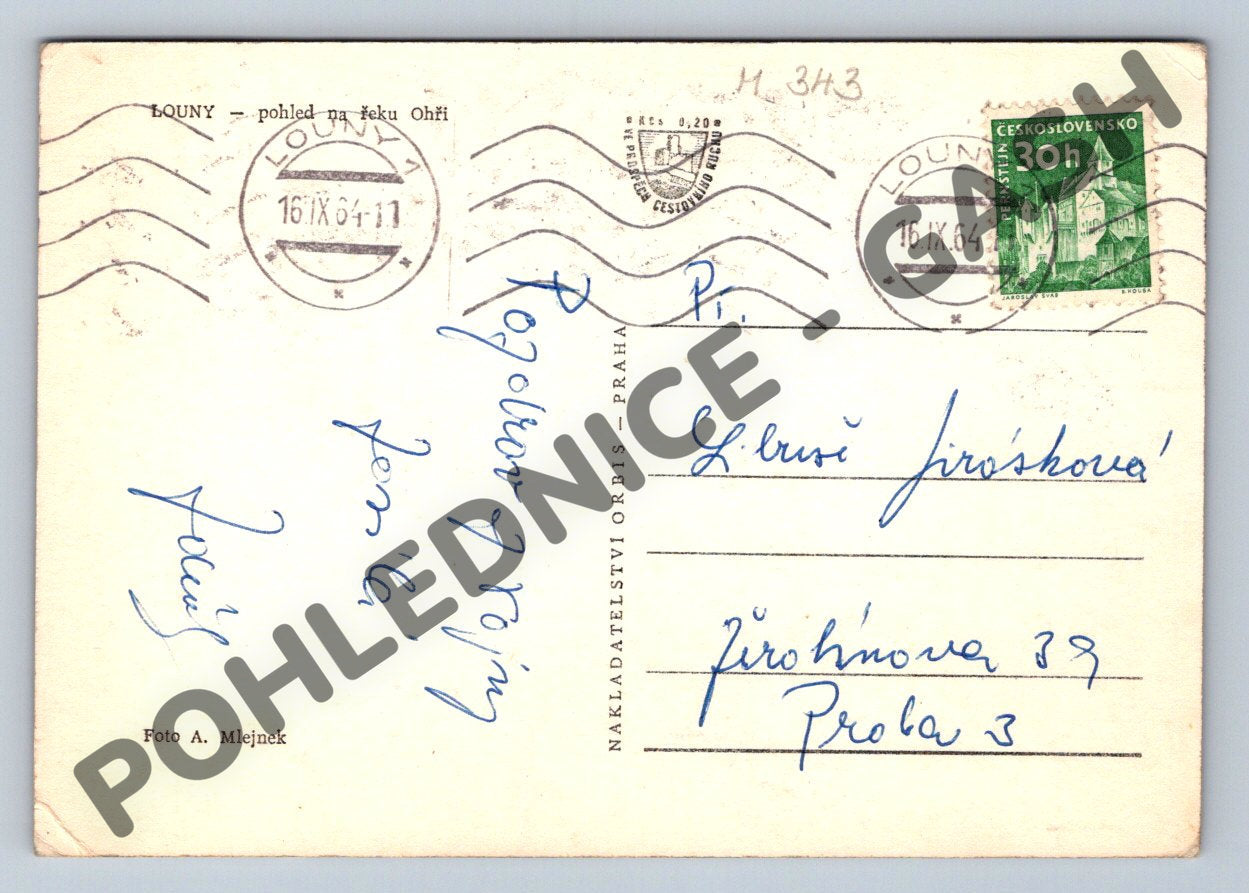 M 343
LOUNY — pohled na řeku Ohři
LOUNY 1
16.IX.64-11
Kčs 0,20
VE PROSPĚCH CESTOVNÍHO RUCHU
LOUNY
16.IX.64
ČESKOSLOVENSKO
30h
PERNŠTEJN
JAROSLAV ŠVÁB
Pozdrav z
Pí.
Libuše Jirásková
Žerotínova 39
Praha 3
NAKLADATELSTVÍ ORBIS — PRAHA
Foto A. Mlejnek
POHLEDNICE - GASH